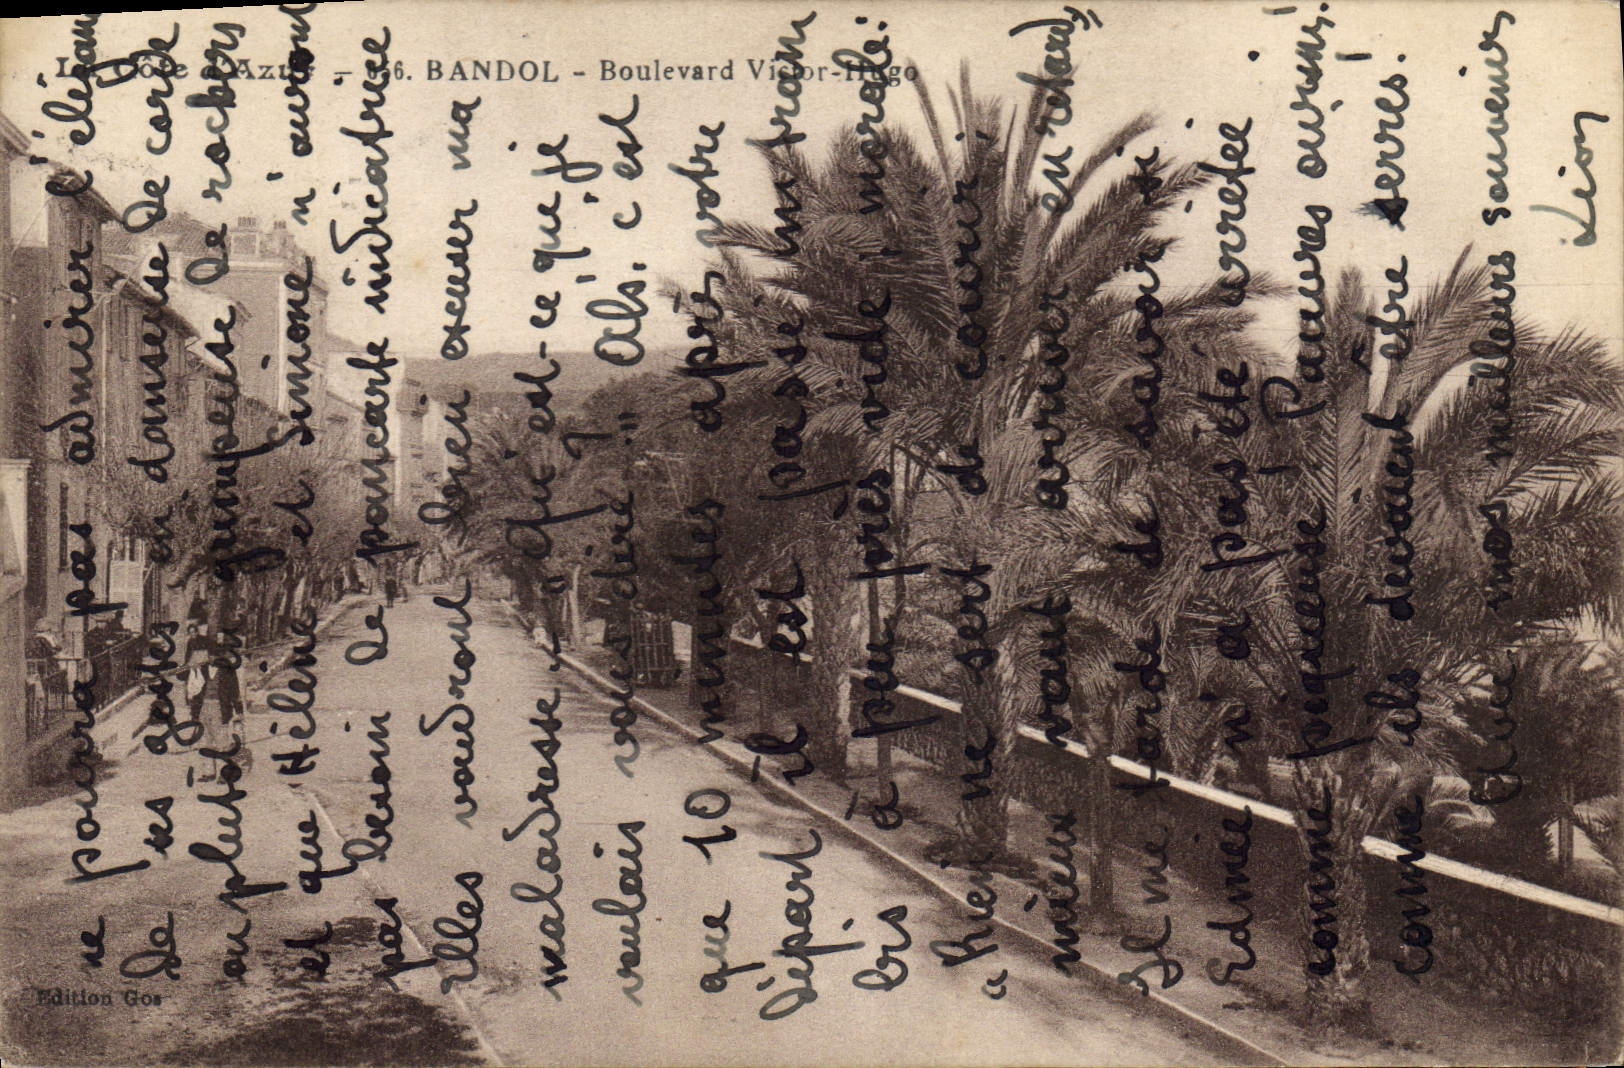 La Côte d'Azur - 36. BANDOL - Boulevard Victor-Hugo
ne pourra pas admirer l'élégance
De ses gestes en danseuse de corde
ou plutôt en grimpeuse de rochers
et que Hélène et Simone n'auront
pas besoin De pancarte indicatrice
Elles voudront bien excuser ma
maladresse. — "Qu'est-ce que je
voulais vous dire?" Ah, c'est
que 10 minutes après votre
Départ il est passé un tram
à peu près vide! morale:
"Rien ne sert de courir,
mieux vaut arriver en retard"
Il me tarde de savoir si
Edmée n'a pas été arrêtée
comme piqueuse! Pauvres oursins!
comme ils devaient être serrés.
mes meilleurs souvenirs
Edition Gos